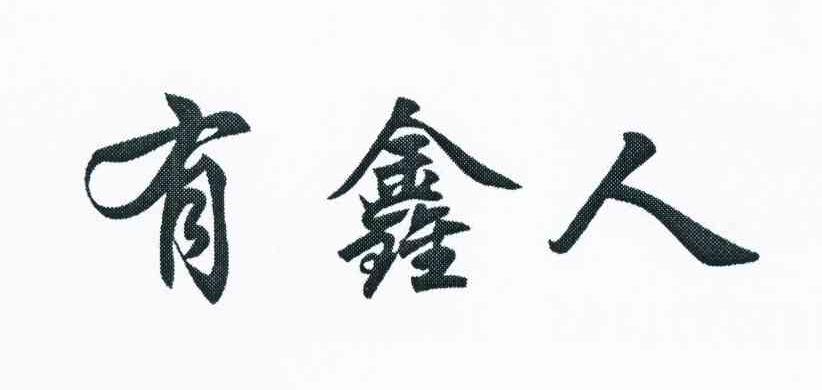 有鑫人